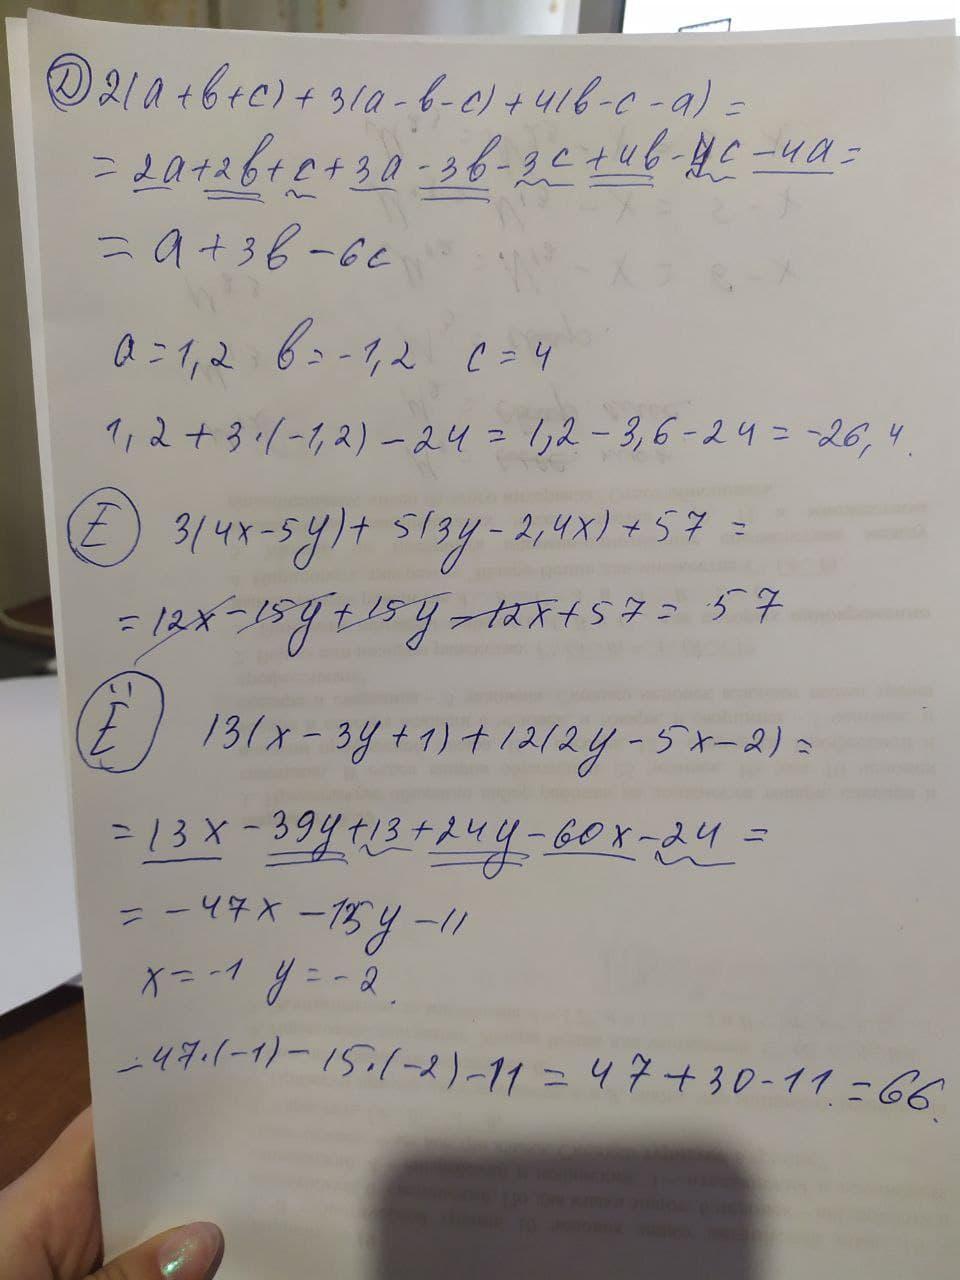 Д) 2(a+b+c)+3(a-b-c)+4(b-c-a)=
=2a+2b+c+3a-3b-3c+4b-4c-4a=
=a+3b-6c
a=1,2 b=-1,2 c=4
1,2+3·(-1,2)-24=1,2-3,6-24=-26,4.
Е 3(4x-5y)+5(3y-2,4x)+57=
=12x-15y+15y-12x+57=57
Ё 13(x-3y+1)+12(2y-5x-2)=
=13x-39y+13+24y-60x-24=
=-47x-15y-11
x=-1 y=-2.
-47·(-1)-15·(-2)-11=47+30-11=66.